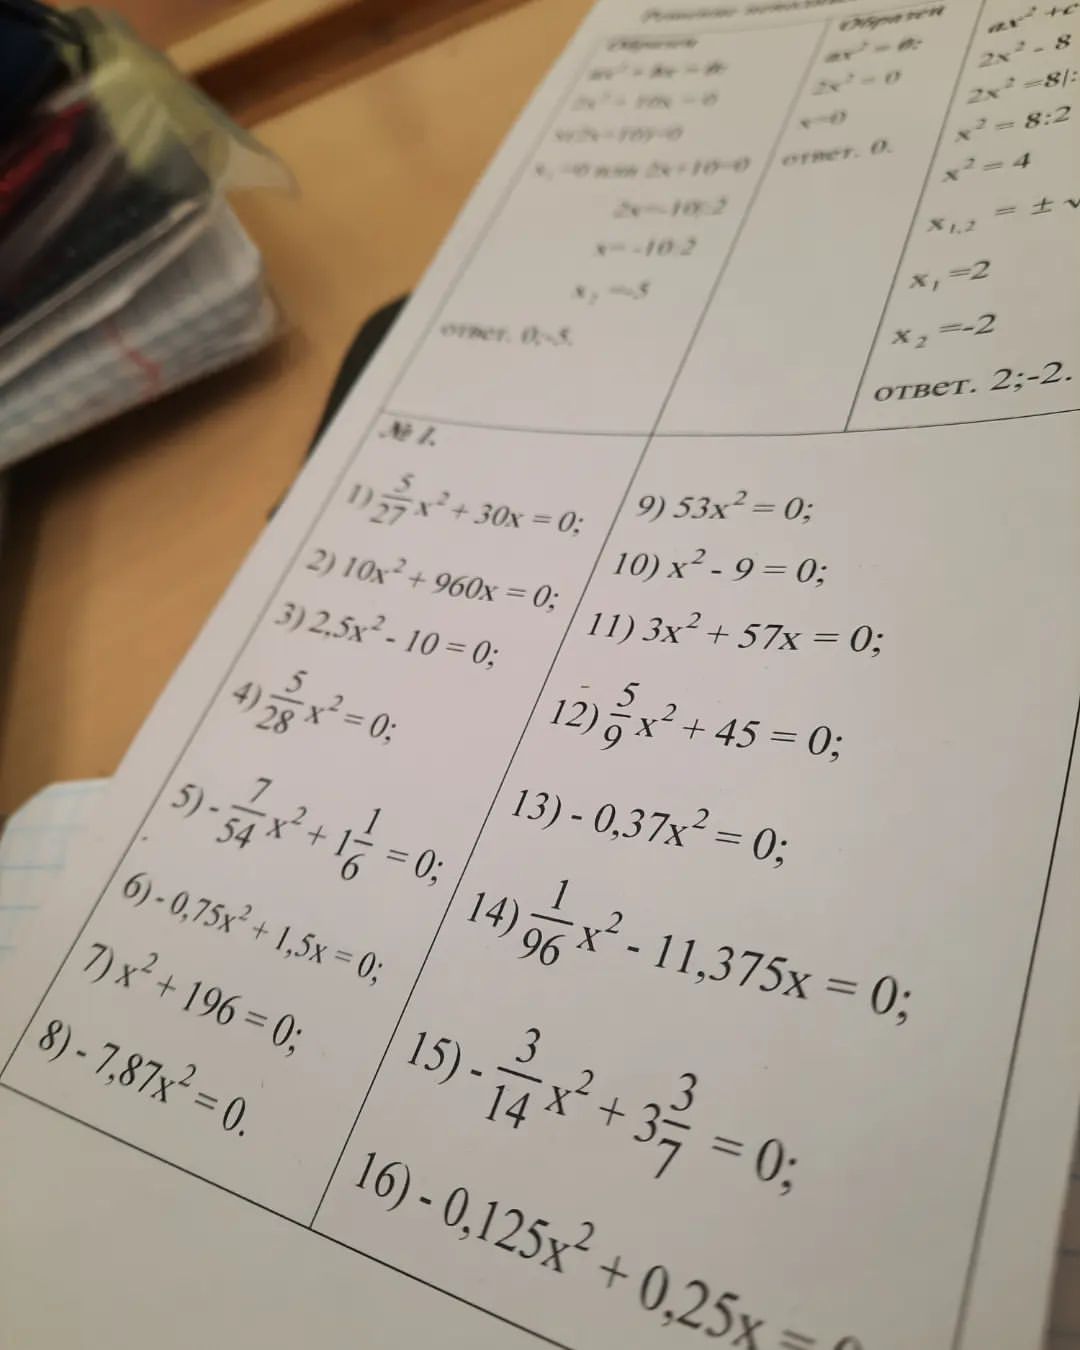 Решение
Образец
ax² + bx = 0;
2x² + 10x = 0
x(2x+10)=0
x₁ =0 или 2x+10=0
2x=-10|:2
x= -10:2
x₂ =-5
ответ. 0;-5.
Образец
ax² = 0;
2x² = 0
x=0
ответ. 0.
ax² +c
2x² - 8
2x² =8|:
x² = 8:2
x² = 4
x₁,₂ = ± √
x₁ =2
x₂ =-2
ответ. 2;-2.
№ 1.
1) 5/27 x² + 30x = 0;
2) 10x² + 960x = 0;
3) 2,5x² - 10 = 0;
4) 5/28 x² = 0;
5) - 7/54 x² + 1 1/6 = 0;
6) - 0,75x² + 1,5x = 0;
7) x² + 196 = 0;
8) - 7,87x² = 0.
9) 53x² = 0;
10) x² - 9 = 0;
11) 3x² + 57x = 0;
12) 5/9 x² + 45 = 0;
13) - 0,37x² = 0;
14) 1/96 x² - 11,375x = 0;
15) - 3/14 x² + 3 3/7 = 0;
16) - 0,125x² + 0,25x =